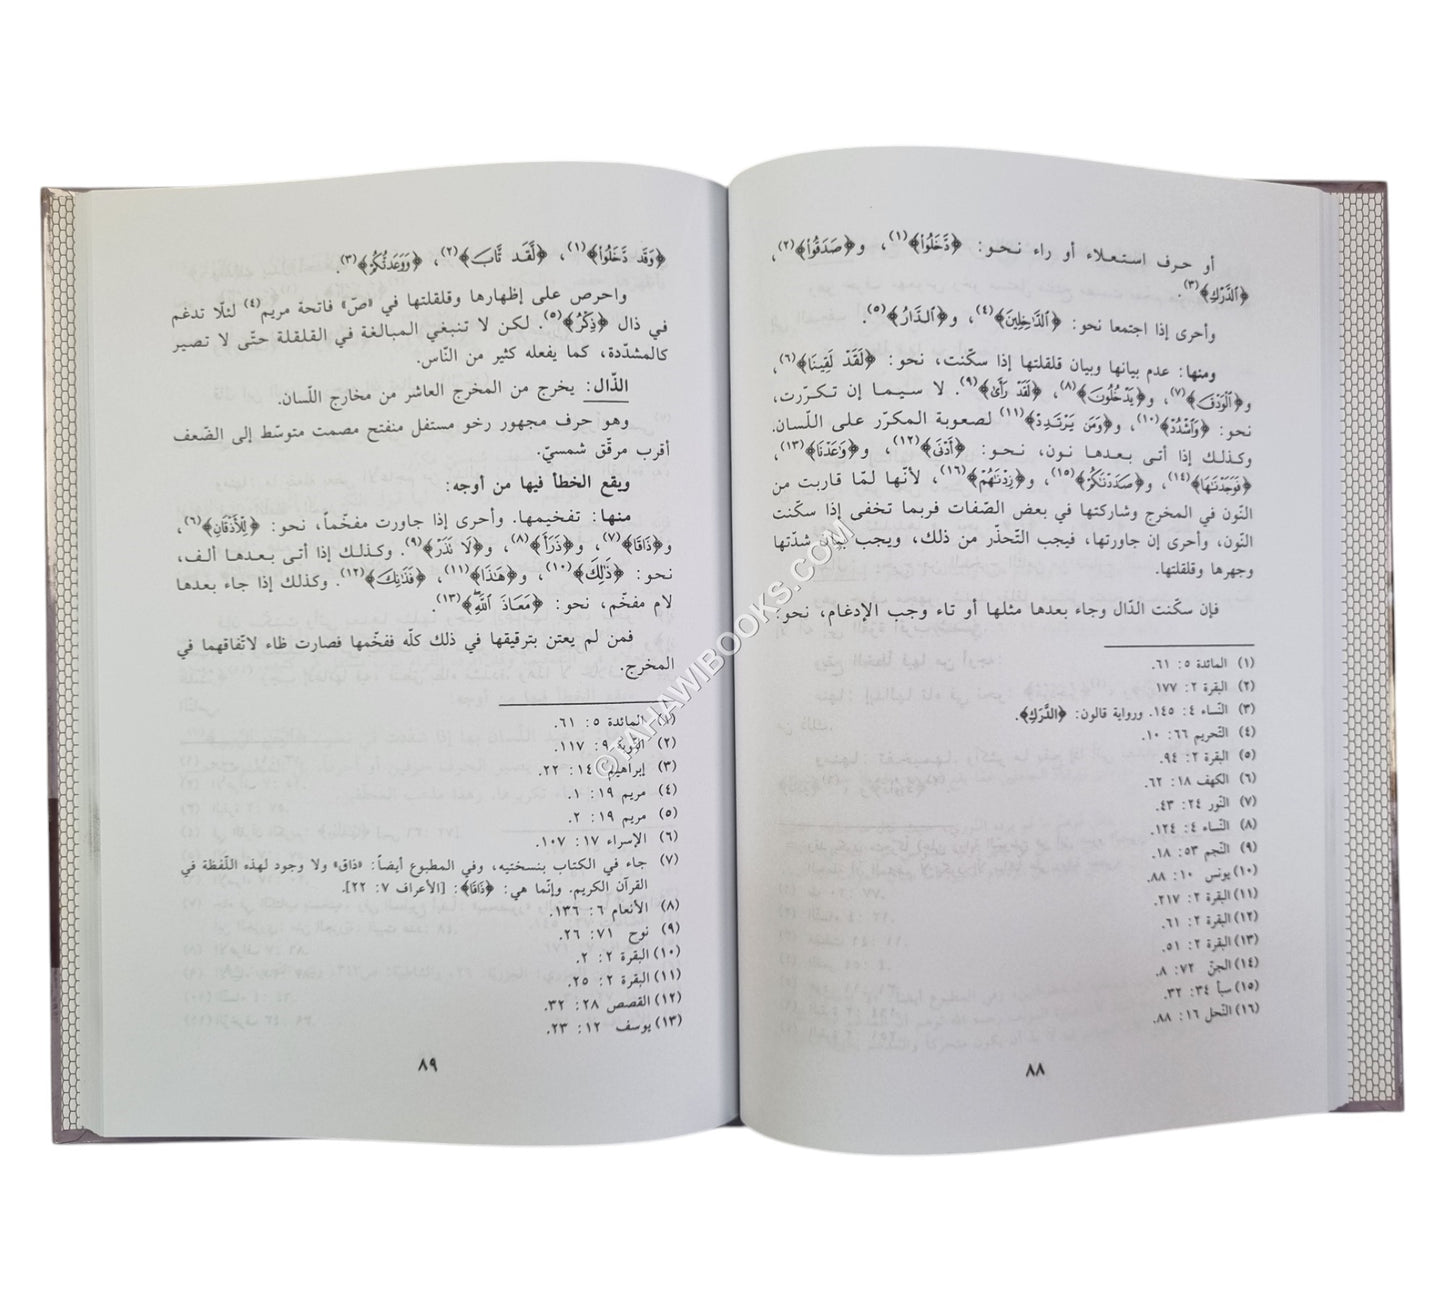 أو حرف استعلاء أو راء نحو: ﴿دَّخَلُواْ﴾(١)، و﴿صَدَقُواْ﴾(٢)،
﴿ٱلدَّرْكِ﴾(٣).
وأحرى إذا اجتمعا نحو: ﴿ٱلدَّٰخِلِينَ﴾(٤)، و﴿ٱلدَّارُ﴾(٥).
ومنها: عدم بيانها وبيان قلقلتها إذا سكّنت، نحو: ﴿لَقَدْ لَقِينَا﴾(٦)،
و﴿ٱلْوَدْقَ﴾(٧)، و﴿يَدْخُلُونَ﴾(٨)، ﴿لَقَدْ رَأَىٰ﴾(٩). لا سيما إن تكرّرت،
نحو: ﴿وَٱشْدُدْ﴾(١٠)، و﴿وَمَن يَرْتَدِدْ﴾(١١) لصعوبة المكرّر على اللسان.
وكذلك إذا أتى بعدها نون، نحو: ﴿أَدْنَىٰ﴾(١٢)، و﴿وَٰعَدْنَا﴾(١٣)،
﴿فَوَجَدْنَٰهَا﴾(١٤)، و﴿صَدَدْنَٰكُمْ﴾(١٥)، و﴿زِدْنَٰهُمْ﴾(١٦)، لأنّها لمّا قاربت من
النّون في المخرج وشاركتها في بعض الصّفات فربما تخفى إذا سكّنت
النّون، وأحرى إن جاورتها، فيجب التّحذّر من ذلك، ويجب بيان شدّتها
وجهرها وقلقلتها.
فإن سكّنت الدّال وجاء بعدها مثلها أو تاء وجب الإدغام، نحو:
(١) المائدة ٥: ٦١.
(٢) البقرة ٢: ١٧٧
(٣) النّساء ٤: ١٤٥. ورواية قالون: ﴿الدَّرَكِ﴾.
(٤) التّحريم ٦٦: ١٠.
(٥) البقرة ٢: ٩٤.
(٦) الكهف ١٨: ٦٢.
(٧) النّور ٢٤: ٤٣.
(٨) النّساء ٤: ١٢٤.
(٩) النّجم ٥٣: ١٨.
(١٠) يونس ١٠: ٨٨.
(١١) البقرة ٢: ٢١٧.
(١٢) البقرة ٢: ٦١.
(١٣) البقرة ٢: ٥١.
(١٤) الجنّ ٧٢: ٨.
(١٥) سبأ ٣٤: ٣٢.
(١٦) النّحل ١٦: ٨٨.
٨٨
﴿وَقَد دَّخَلُواْ﴾(١)، ﴿لَّقَد تَّابَ﴾(٢)، ﴿وَوَعَدتُّكُمْ﴾(٣).
واحرص على إظهارها وقلقلتها في «صّ» فاتحة مريم(٤) لئلّا تدغم
في ذال ﴿ذِكْرُ﴾(٥). لكن لا تنبغي المبالغة في القلقلة حتّى لا تصير
كالمشدّدة، كما يفعله كثير من النّاس.
الذّال: يخرج من المخرج العاشر من مخارج اللّسان.
وهو حرف مجهور رخو مستفل منفتح مصمت متوسّط إلى الضّعف
أقرب مرقّق شمسيّ.
ويقع الخطأ فيها من أوجه:
منها: تفخيمها. وأحرى إذا جاورت مفخّماً، نحو: ﴿لِلْأَذْقَانِ﴾(٦)،
و﴿ذَاقَا﴾(٧)، و﴿ذَرَأَ﴾(٨)، و﴿لَا تَذَرْ﴾(٩). وكذلك إذا أتى بعدها ألف،
نحو: ﴿ذَٰلِكَ﴾(١٠)، و﴿هَٰذَا﴾(١١)، ﴿فَذَٰنِكَ﴾(١٢). وكذلك إذا جاء بعدها
لام مفخّم، نحو: ﴿مَعَاذَ ٱللَّهِ﴾(١٣).
فمن لم يعتن بترقيقها في ذلك كلّه ففخّمها فصارت ظاء لاتّفاقهما في
المخرج.
(١) المائدة ٥: ٦١.
(٢) التّوبة ٩: ١١٧.
(٣) إبراهيم ١٤: ٢٢.
(٤) مريم ١٩: ١.
(٥) مريم ١٩: ٢.
(٦) الإسراء ١٧: ١٠٧.
(٧) جاء في الكتاب بنسختيه، وفي المطبوع أيضاً: «ذاق» ولا وجود لهذه اللّفظة في
القرآن الكريم. وإنّما هي: ﴿ذَاقَا﴾: [الأعراف ٧: ٢٢].
(٨) الأنعام ٦: ١٣٦.
(٩) نوح ٧١: ٢٦.
(١٠) البقرة ٢: ٢.
(١١) البقرة ٢: ٢٥.
(١٢) القصص ٢٨: ٣٢.
(١٣) يوسف ١٢: ٢٣.
٨٩
©TAHAWIBOOKS.COM